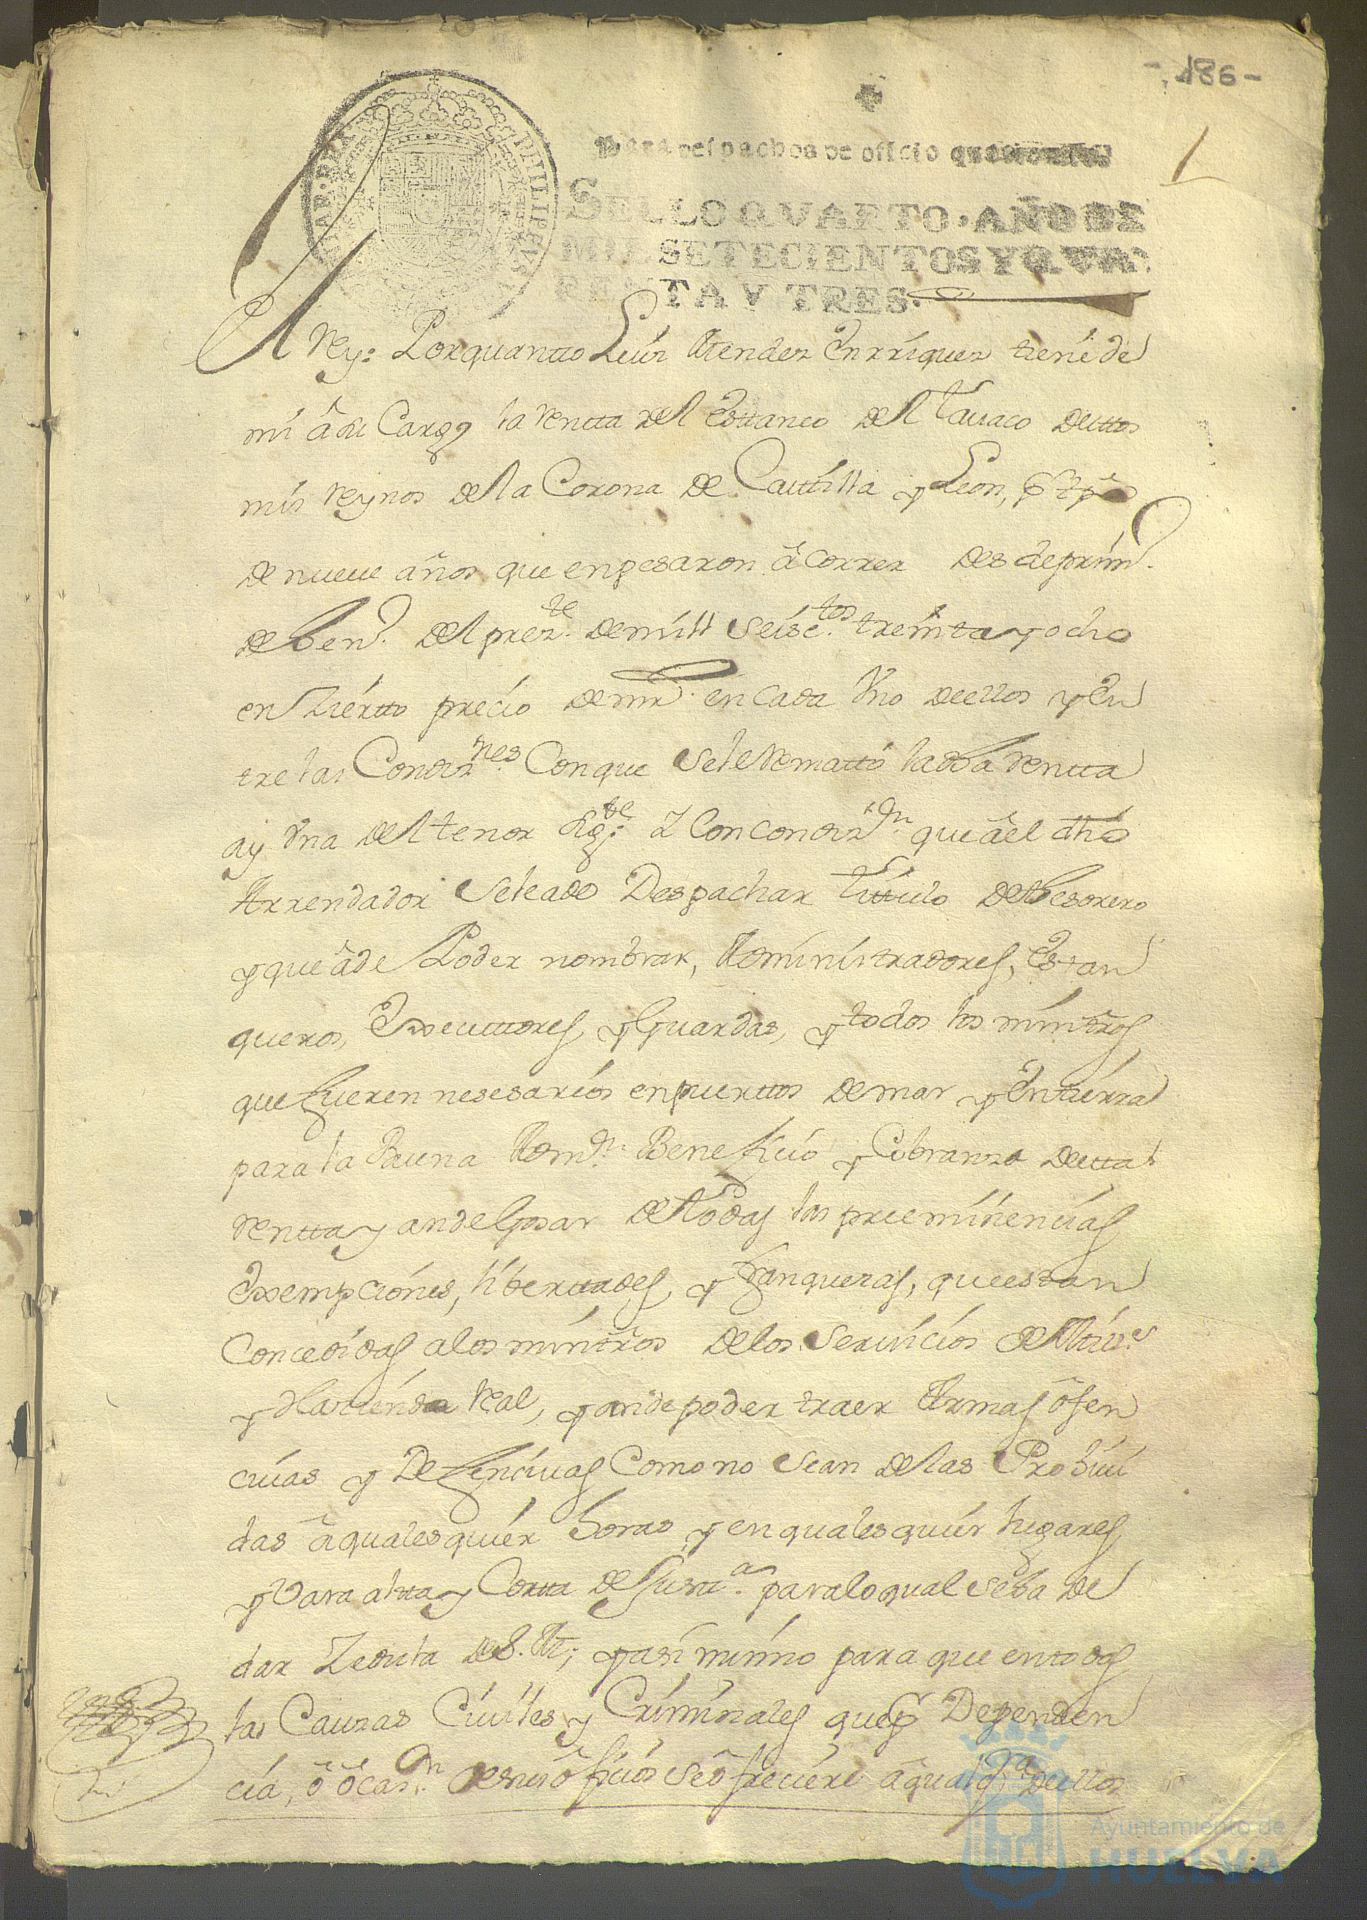 - 186 -
1
Para despachos de oficio quatro mrs.
SELLO QVARTO, AÑO DE
MIL SETECIENTOS Y QVA-
RENTA Y TRES.
PHILIPPUS
El Rey: Porquantto Luis Mendez Enrriquez tiene de
mi â su Cargo la rentta del Esttanco del tavaco desttos
mis reynos de la Corona de Casttilla y Leon, por tpō
de nueve años que enpesaron â correr desde primº.
de henº. del preztᵉ. de mill seisctos. treinta y ocho
en zierto precio de mrs. en cada Vno de ellos y En
tre las Condiznes. Con que se le Remattó la dha rentta
ay Vna del tenor sigtᵉ: Y Con condizn. que âel dho
Arrendador se le a de Despachar titulo de thesorero
y que â de Poder nombrar, Administradores, Estan
queros, Executtores y Guardas, y todos los ministros
que fueren nesesarios en puerttos de mar y En tierra
para la Buena Admn. Beneficio y Cobranza de estta
rentta y an de Gosar de todas las preeminencias
Exempciones, liberttades, y franquezas, que estan
Concedidas a los ministros de los servicios de Mills.
y Hacienda real, y an de poder traer Armas ôfen
civas y Defencivas Como no sean de las Prohivi
das â quales quier horas y en quales quier lugares
y Vara altta y Cortta de Justiᵃ. para lo qual se ha de
dar Zedula de S. M.; y asi mismo para que en todas
las Causas Civiles y Criminales que por Dependen
cia, ô ôcasn. de sus ôficios se ôfreciere â qualqra de ellos
Ayuntamiento de
HUELVA